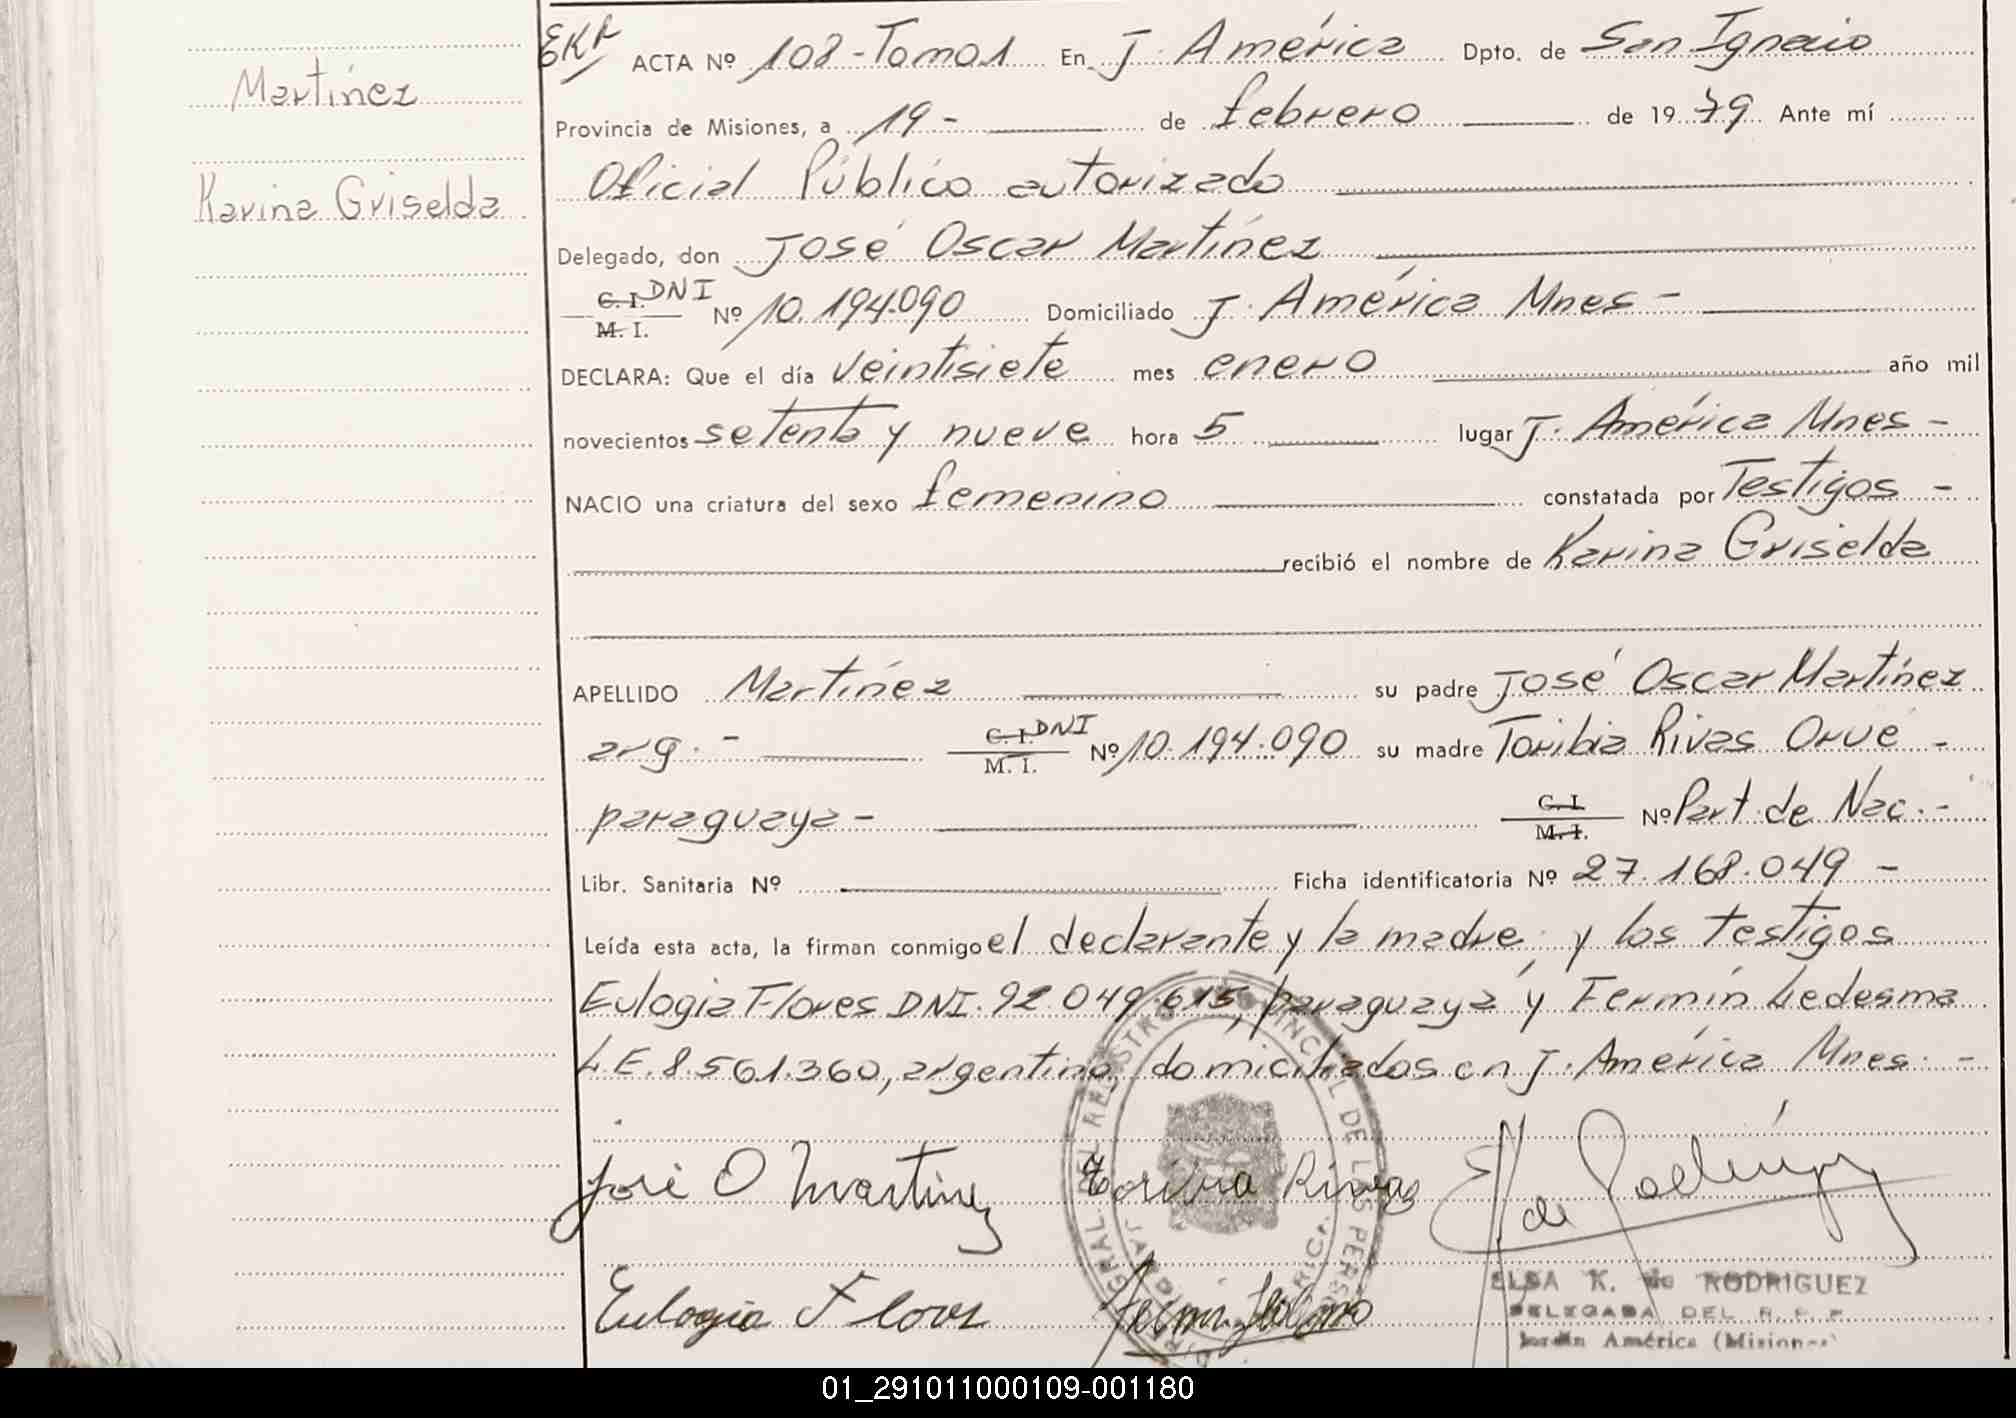 Martínez
Karina Griselda
EKR ACTA Nº 108-Tomo1 En J. América Dpto. de San Ignacio
Provincia de Misiones, a 19- de febrero de 1979 Ante mí
Oficial Público autorizado
Delegado, don José Oscar Martínez
C. I. DNI
M. I. Nº 10.194.090 Domiciliado J. América Mnes-
DECLARA: Que el día veintisiete mes enero año mil
novecientos setenta y nueve hora 5 lugar J. América Mnes-
NACIO una criatura del sexo femenino constatada por Testigos -
recibió el nombre de Karina Griselda
APELLIDO Martínez su padre José Oscar Martínez
arg.- C. I. DNI
M. I. Nº 10.194.090 su madre Toribia Rivas Orué -
paraguaya- C. I.
M. I. Nº Part. de Nac.-
Libr. Sanitaria Nº Ficha identificatoria Nº 27.168.049 -
Leída esta acta, la firman conmigo el declarante y la madre, y los testigos
Eulogia Flores DNI. 92.049.615, paraguaya y Fermín Ledesma
L.E. 8.561.360, argentino, domiciliados en J. América Mnes. -
José O Martínez Toribia Rivas E K de Rodríguez
ELSA K. de RODRIGUEZ
DELEGADA DEL R. P. P.
Jardín América (Misiones)
Eulogia Flores Fermín Ledesma
GRAL. DEL REGISTRO PROVINCIAL DE LAS PERSONAS
JARDIN AMERICA
01_291011000109-001180